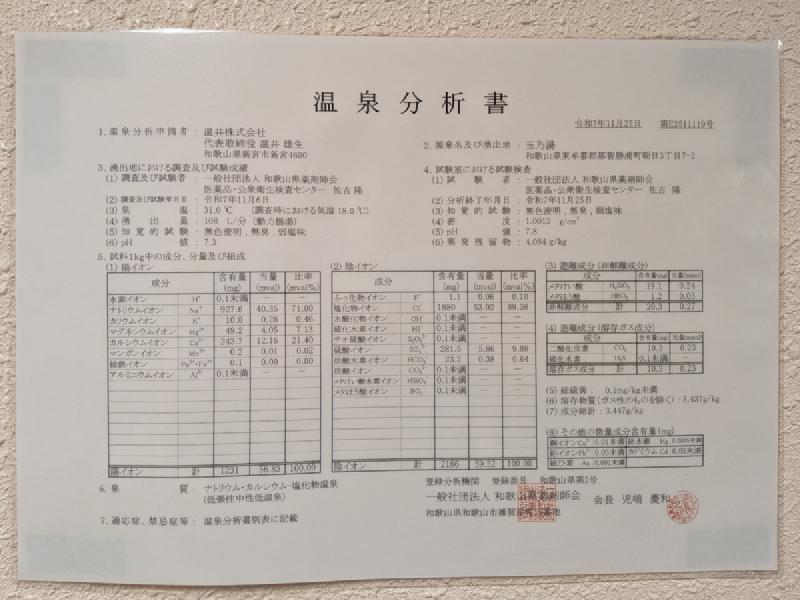 温泉分析書
令和7年11月27日 第E2511119号
1. 温泉分析申請者 : 温井株式会社
代表取締役 温井 雄生
和歌山県新宮市新宮4600
2. 源泉名及び湧出地 : 玉乃湯
和歌山県東牟婁郡那智勝浦町朝日3丁目7-2
3. 湧出地における調査及び試験成績
(1) 調査及び試験者 : 一般社団法人 和歌山県薬剤師会
医薬品・公衆衛生検査センター 佐古 隆
(2) 調査及び試験年月日 : 令和7年11月6日
(3) 泉温 : 31.0 ℃ (調査時における気温 18.0 ℃)
(4) 湧出量 : 108 L/分 (動力揚湯)
(5) 知覚的試験 : 無色澄明, 無臭, 弱塩味
(6) pH値 : 7.3
4. 試験室における試験検査
(1) 試験者 : 一般社団法人 和歌山県薬剤師会
医薬品・公衆衛生検査センター 佐古 隆
(2) 分析終了年月日 : 令和7年11月25日
(3) 知覚的試験 : 無色澄明, 無臭, 弱塩味
(4) 密度 : 1.0012 g/cm³
(5) pH値 : 7.8
(6) 蒸発残留物 : 4.084 g/kg
5. 試料1kg中の成分、分量及び組成
(1) 陽イオン
成分 含有量(mg) 当量(mval) 比率(mval%)
水素イオン H⁺ 0.1未満 — —
ナトリウムイオン Na⁺ 927.6 40.35 71.00
カリウムイオン K⁺ 10.0 0.26 0.46
マグネシウムイオン Mg²⁺ 49.2 4.05 7.13
カルシウムイオン Ca²⁺ 243.7 12.16 21.40
マンガンイオン Mn²⁺ 0.2 0.01 0.02
総鉄イオン Fe²⁺+Fe³⁺ 0.1 0.00 0.00
アルミニウムイオン Al³⁺ 0.1未満 — —
陽イオン 計 1231 56.83 100.00
(2) 陰イオン
成分 含有量(mg) 当量(mval) 比率(mval%)
ふっ化物イオン F⁻ 1.1 0.06 0.10
塩化物イオン Cl⁻ 1880 53.02 89.38
水酸化物イオン OH⁻ 0.1未満 — —
硫化水素イオン HS⁻ 0.1未満 — —
チオ硫酸イオン S₂O₃²⁻ 0.1未満 — —
硫酸イオン SO₄²⁻ 281.5 5.86 9.88
炭酸水素イオン HCO₃⁻ 23.2 0.38 0.64
炭酸イオン CO₃²⁻ 0.1未満 — —
メタけい酸水素イオン HSiO₃⁻ 0.1未満 — —
メタほう酸イオン BO₂⁻ 0.1未満 — —
陰イオン 計 2186 59.32 100.00
(3) 遊離成分 (非解離成分)
成分 含有量(mg) 当量(mmol)
メタけい酸 H₂SiO₃ 19.1 0.24
メタほう酸 HBO₂ 1.2 0.03
非解離成分 計 20.3 0.27
(4) 遊離成分 (溶存ガス成分)
成分 含有量(mg) 当量(mmol)
二酸化炭素 CO₂ 10.3 0.23
硫化水素 H₂S 0.1未満 —
溶存ガス成分 計 10.3 0.23
(5) 総硫黄 : 0.1mg/kg未満
(6) 溶存物質(ガス性のものを除く) : 3.437g/kg
(7) 成分総計 : 3.447g/kg
(8) その他の微量成分含有量(mg)
銅イオンCu²⁺ 0.01未満 総水銀 Hg 0.0005未満
鉛イオンPb²⁺ 0.05未満 カドミウム Cd 0.05未満
総ひ素 As 0.001未満
6. 泉質 : ナトリウム・カルシウム-塩化物温泉
(低張性中性低温泉)
7. 適応症、禁忌症等 : 温泉分析書別表に記載
登録分析機関 登録番号 和歌山県第2号
一般社団法人 和歌山県薬剤師会 会長 児嶋 慶和
和歌山県和歌山市雑賀屋町